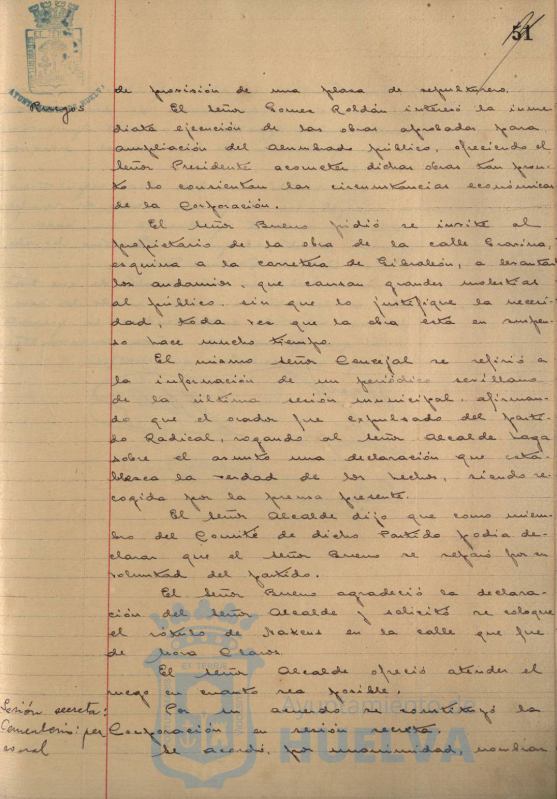 51
de provisión de una plaza de sepulturero.
Ruegos
El Señor Gomez Roldán interesó la inme
diata ejecución de las obras aprobadas para
ampliación del alumbrado público, ofreciendo el
Señor Presidente acometer dichas obras tan pron-
to lo consientan las circunstancias económicas
de la Corporación.
El Señor Bueno pidió se invite al
propietario de la obra de la calle Gravina,
esquina a la carretera de Gibraleón, a levantar
los andamios, que causan grandes molestias
al público, sin que lo justifique la necesi-
dad, toda vez que la obra está en suspen-
so hace mucho tiempo.
El mismo Señor Concejal se refirió a
la información de un periódico sevillano
de la última sesión municipal, afirman-
do que el orador fue expulsado del parti-
do Radical, rogando al Señor Alcalde haga
sobre el asunto una declaración que esta-
blezca la verdad de los hechos, siendo re-
cogida por la prensa presente.
El Señor Alcalde dijo que como miem-
bro del Comité de dicho Partido podia de-
clarar que el Señor Bueno se separó por su
voluntad del partido.
El Señor Bueno agradeció la declara-
ción del Señor Alcalde y solicitó se coloque
el rótulo de Nakens en la calle que fue
de Mora Claros.
El Señor Alcalde ofreció atender el
ruego en cuanto sea posible.
Sesión secreta:
Cementerio: per
sonal
Por un acuerdo se constituyó la
Corporación en sesión secreta.
Se acordó, por unanimidad, nombrar
Ayuntamiento de
HUELVA